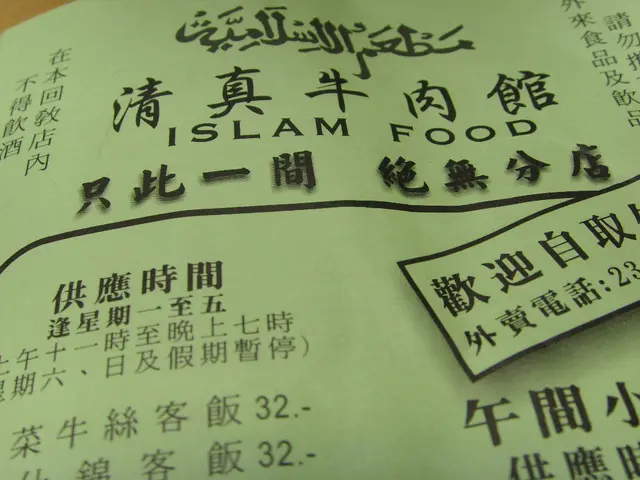 مطعم الإسلامية
在本回教店內
不得飲酒
請勿
外來食品及飲品
清真牛肉館
ISLAM FOOD
只此一間 絕無分店
歡迎自取
外賣電話:23
供應時間
逢星期一至五
午十一時至晚上七時
期六、日及假期暫停)
菜牛絲客飯 32.-
錦客飯 32.-
午間小
供應時